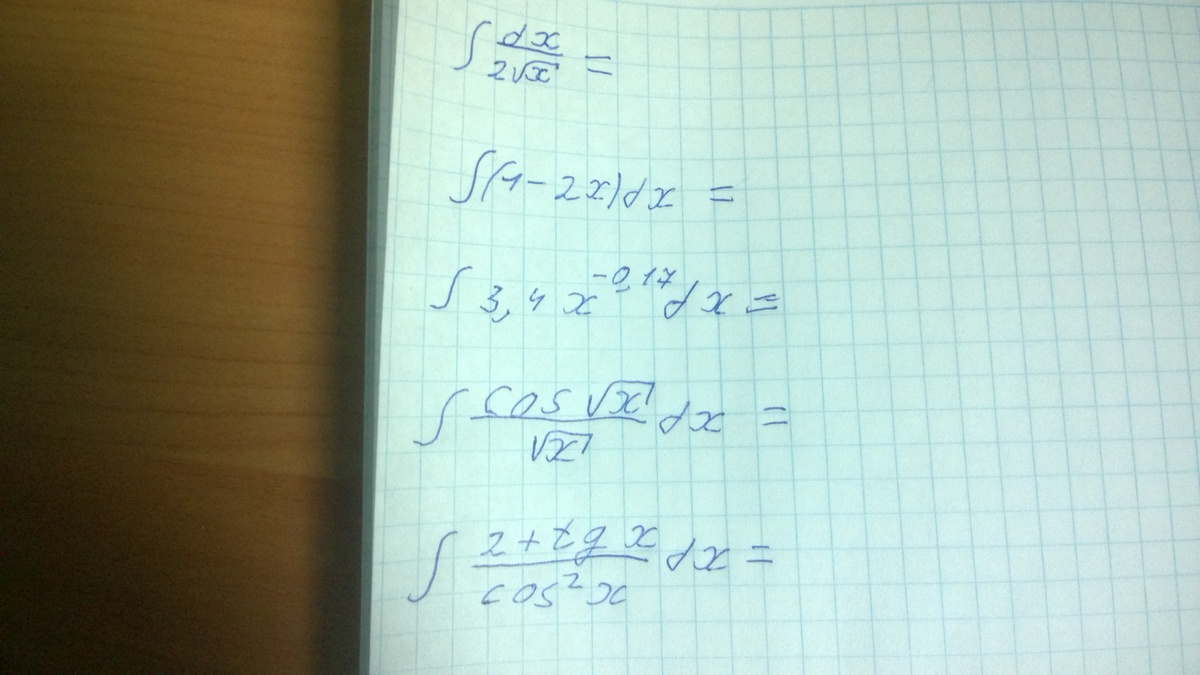 ∫ dx / 2√x =
∫(1 - 2x)dx =
∫ 3,4 x^-0,17 dx =
∫ cos √x / √x dx =
∫ 2 + tg x / cos² x dx =